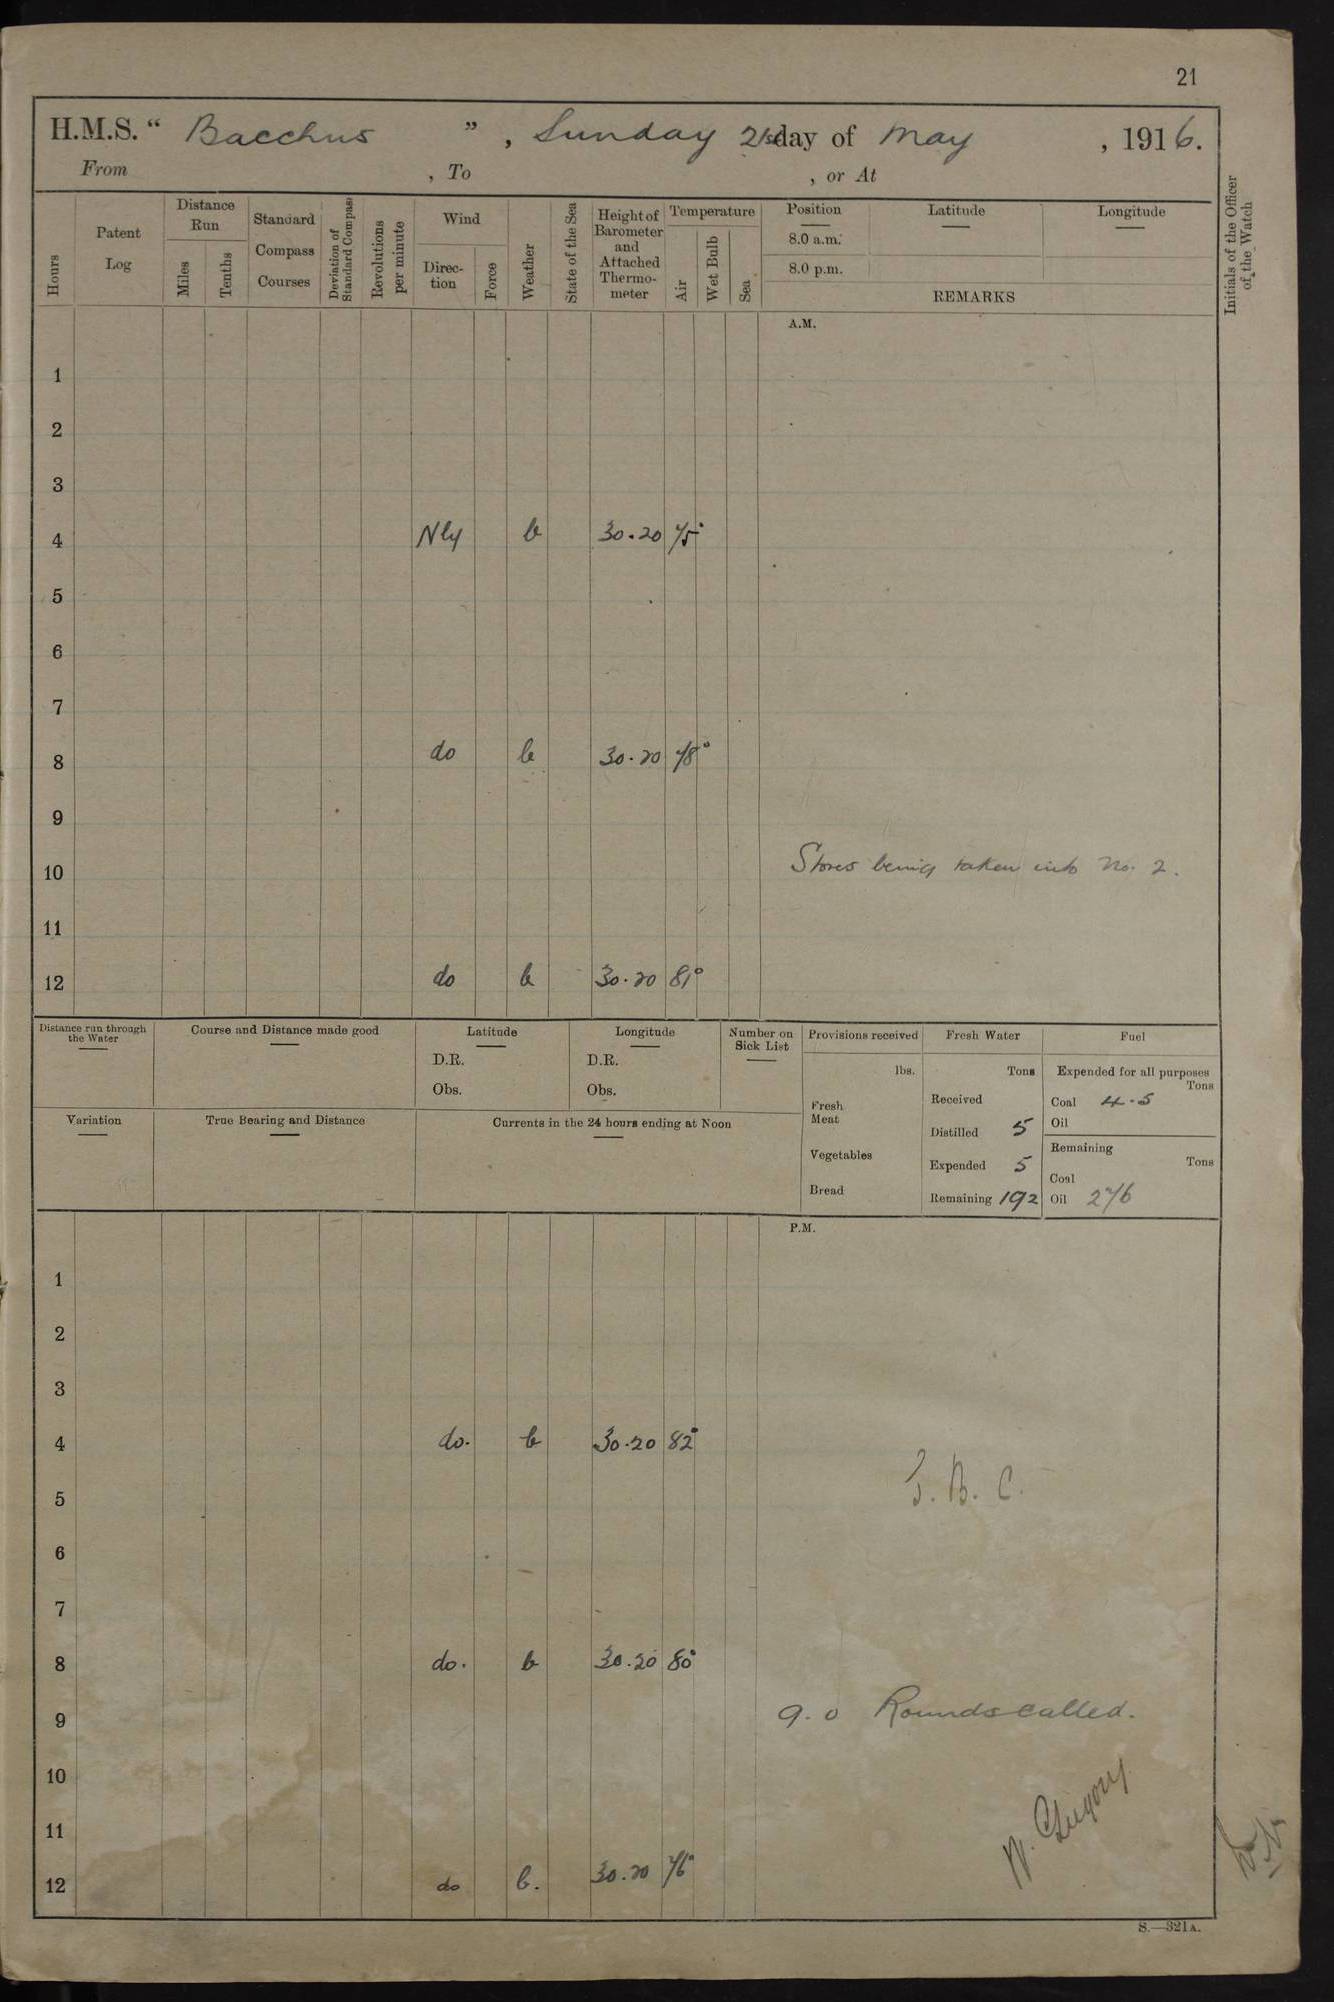 21
H.M.S. “ Bacchus ” , Sunday 21st day of May , 1916.
From , To , or At
Hours
Patent Log
Distance Run
Miles
Tenths
Standard Compass Courses
Deviation of Standard Compass
Revolutions per minute
Wind
Direc-tion
Force
Weather
State of the Sea
Height of Barometer and Attached Thermo-meter
Temperature
Air
Wet Bulb
Sea
Position Latitude Longitude
8.0 a.m.
8.0 p.m.
REMARKS
Initials of the Officer of the Watch
A.M.
1
2
3
4 Nly b 30.20 75°
5
6
7
8 do b 30.20 78°
9
10 Stores being taken into No. 2.
11
12 do b 30.20 81°
Distance run through the Water
Course and Distance made good
Latitude
D.R.
Obs.
Longitude
D.R.
Obs.
Number on Sick List
Provisions received
lbs.
Fresh Meat
Vegetables
Bread
Fresh Water
Tons
Received
Distilled 5
Expended 5
Remaining 192
Fuel
Expended for all purposes
Tons
Coal 4.5
Oil
Remaining
Tons
Coal
Oil 276
Variation
True Bearing and Distance
Currents in the 24 hours ending at Noon
P.M.
1
2
3
4 do. b 30.20 82°
5
6
7
8 do. b 30.20 80°
9 9.0 Rounds called.
10
11
W. Gregory
12 do b. 30.20 76°
S.—321A.